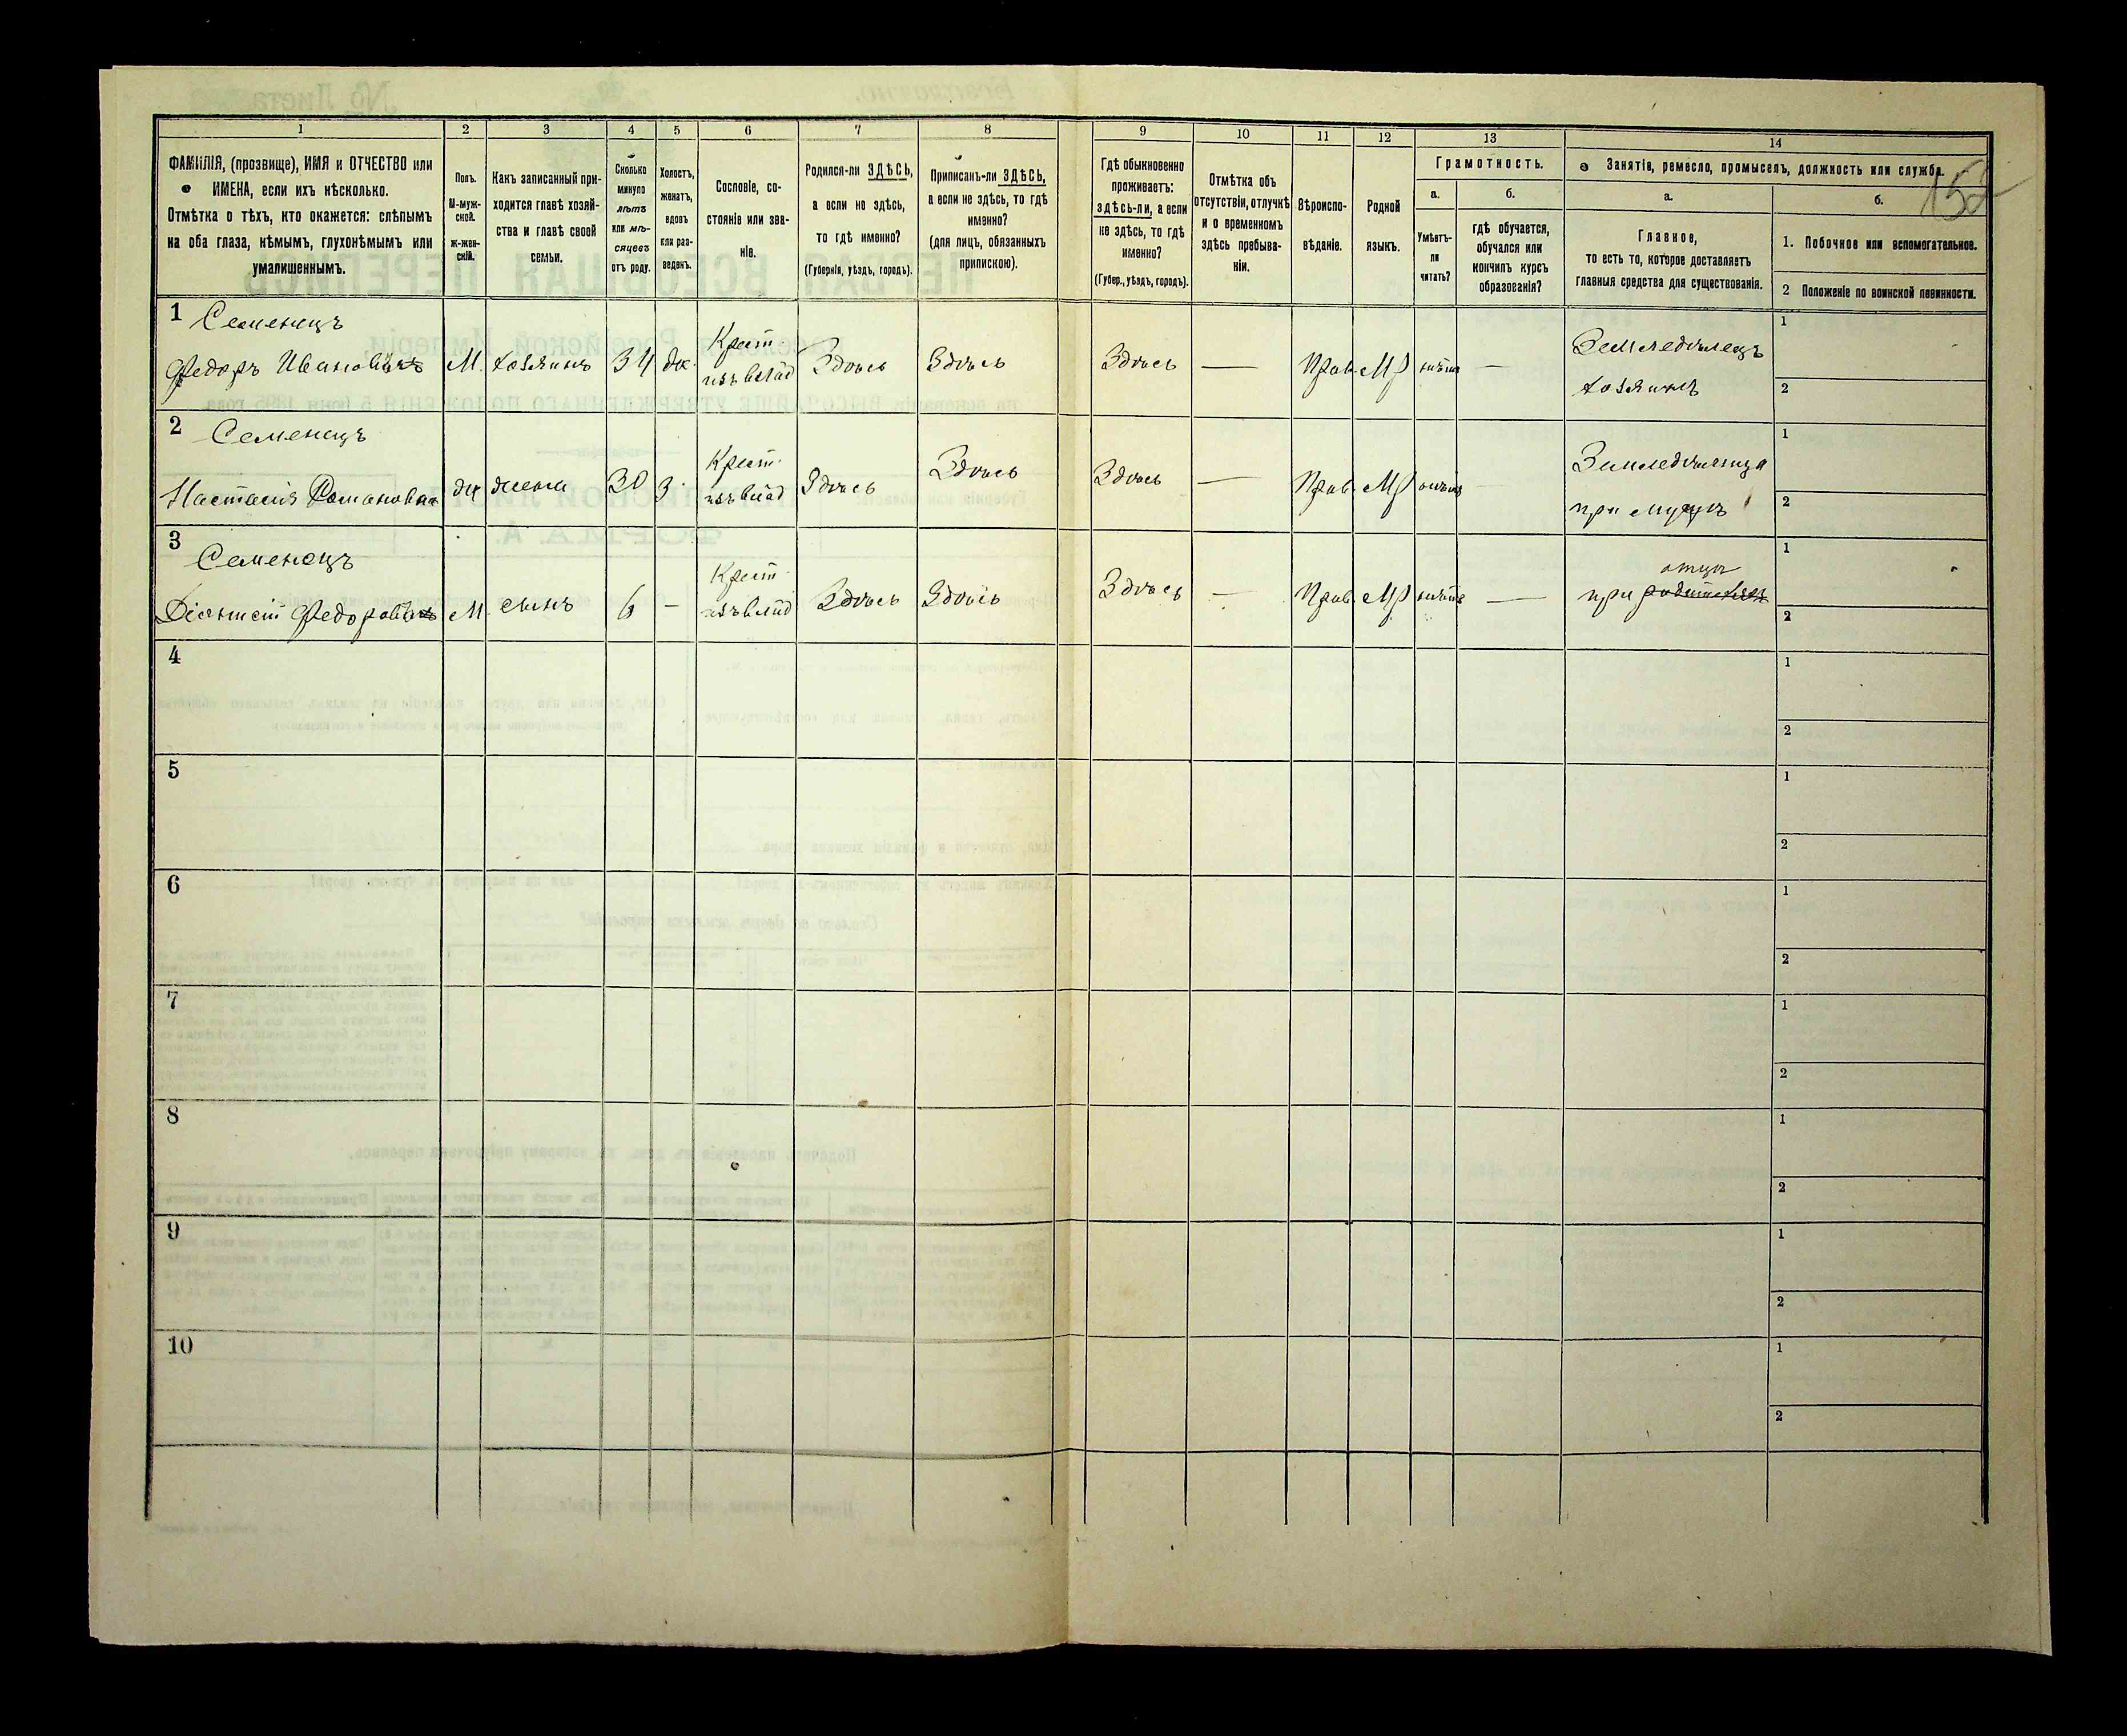 152
1
2
3
4
5
6
7
8
9
10
11
12
13
14
ФАМИЛІЯ, (прозвище), ИМЯ и ОТЧЕСТВО или
ИМЕНА, если ихъ нѣсколько.
Отмѣтка о тѣхъ, кто окажется: слѣпымъ
на оба глаза, нѣмымъ, глухонѣмымъ или
умалишеннымъ.
Полъ.
М-муж-
ской.
Ж-жен-
скій.
Какъ записанный при-
ходится главѣ хозяй-
ства и главѣ своей
семьи.
Сколько
минуло
лѣтъ
или мѣ-
сяцевъ
отъ роду.
Холостъ,
женатъ,
вдовъ
или раз-
веденъ.
Сословіе, со-
стояніе или зва-
ніе.
Родился-ли ЗДѢСЬ,
а если не здѣсь,
то гдѣ именно?
(Губернія, уѣздъ, городъ).
Приписанъ-ли ЗДѢСЬ,
а если не здѣсь, то гдѣ
именно?
(для лицъ, обязанныхъ
припискою).
Гдѣ обыкновенно
проживаетъ:
здѣсь-ли, а если
не здѣсь, то гдѣ
именно?
(Губер., уѣздъ, городъ).
Отмѣтка объ
отсутствіи, отлучкѣ
и о временномъ
здѣсь пребыва-
ніи.
Вѣроиспо-
вѣданіе.
Родной
языкъ.
Грамотность.
а.
Умѣетъ-
ли
читать?
б.
гдѣ обучается,
обучался или
кончилъ курсъ
образованія?
Занятіе, ремесло, промыселъ, должность или служба.
а.
Главное,
то есть то, которое доставляетъ
главныя средства для существованія.
б.
1. Побочное или вспомогательное.
2 Положеніе по воинской повинности.
1 Семенецъ
Федоръ Ивановичъ М. хозяинъ 34 ж. Крест. Здѣсь Здѣсь Здѣсь — Прав. Мр — Земледѣлецъ
хозяинъ
1
2
2 Семенецъ
Настасія Романовна ж жена 30 з. Крест. Здѣсь Здѣсь Здѣсь — Прав. Мр — Земледѣлица
при мужѣ
1
2
3 Семенецъ
Федоровичъ М сынъ 6 — Крест. Здѣсь Здѣсь Здѣсь — Прав. Мр — при родителяхъ
отцѣ
1
2
4
1
2
5
1
2
6
1
2
7
1
2
8
1
2
9
1
2
10
1
2